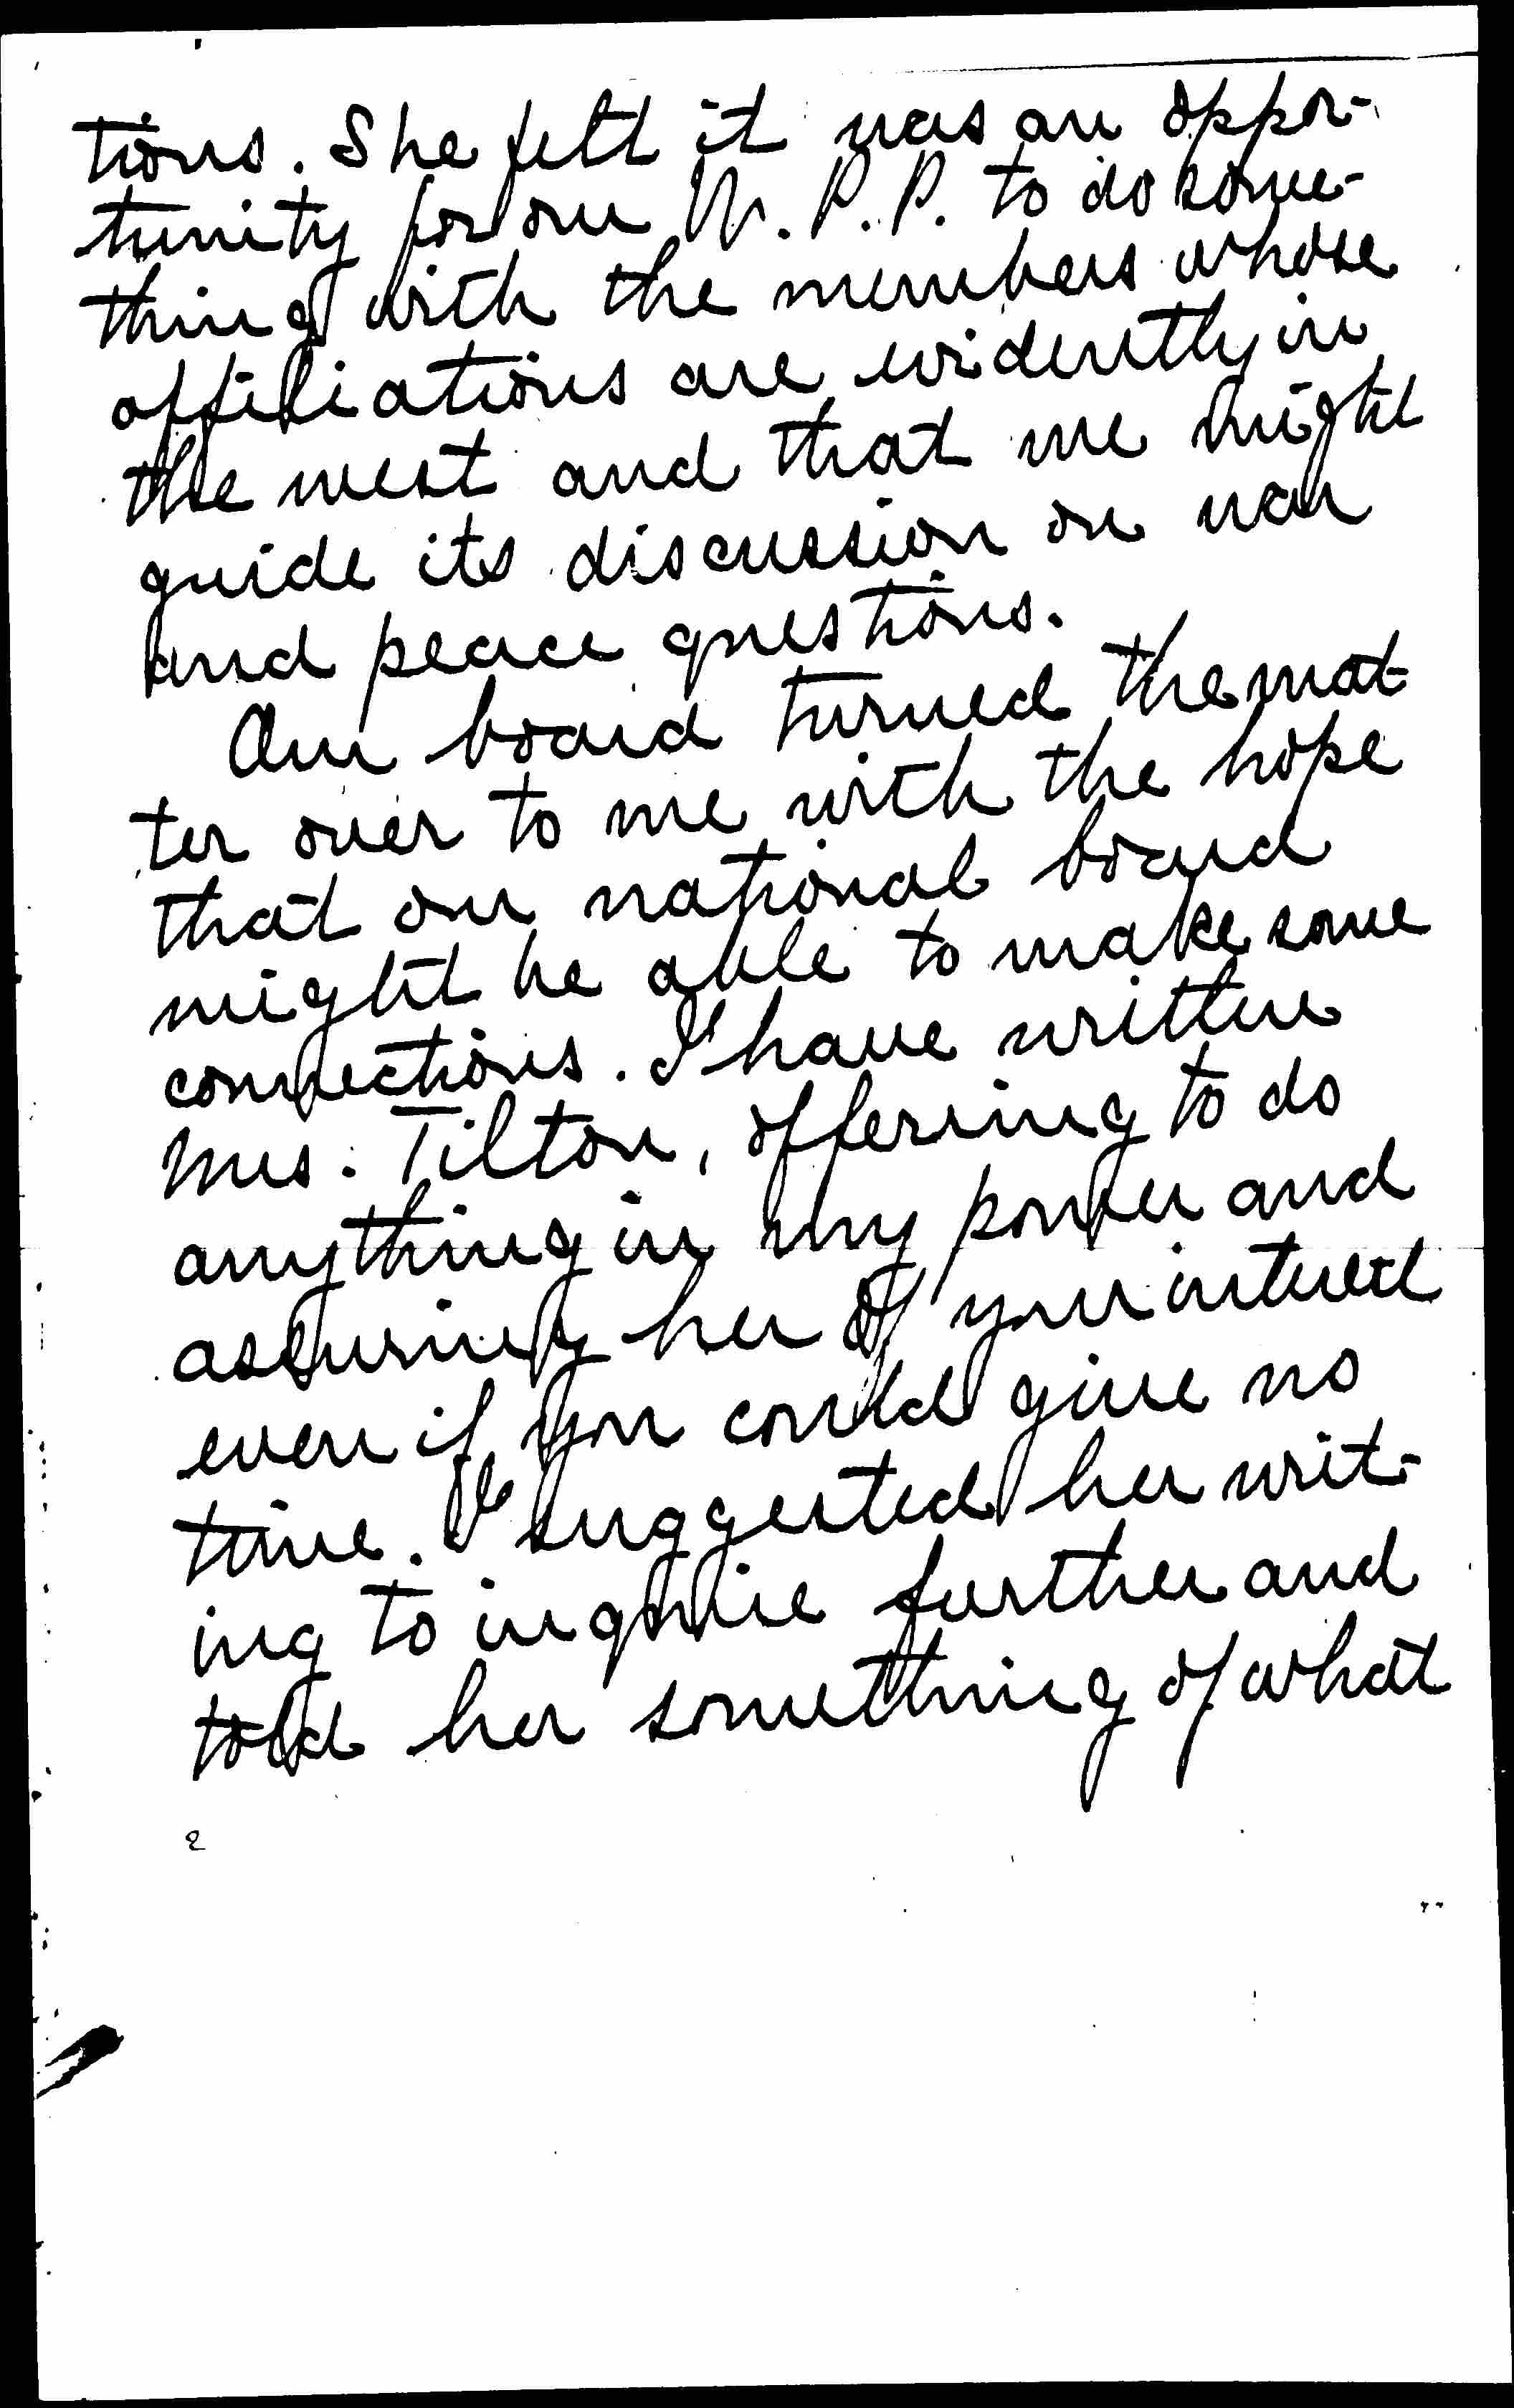 tions. She felt it was an oppor-
tunity for our W.P.P. to do some-
thing with the members whose
affiliations are evidently in
the west and that we might
guide its discussion on war
and peace questions.
Our board turned the mat-
ter over to me with the hope
that our national board
might be able to make some
connections. I have written
Mrs. Tilton, offering to do
anything in my power and
assuring her of your interest
even if you could give no
time. I suggested her writ-
ing to inquire further and
told her something of what
2